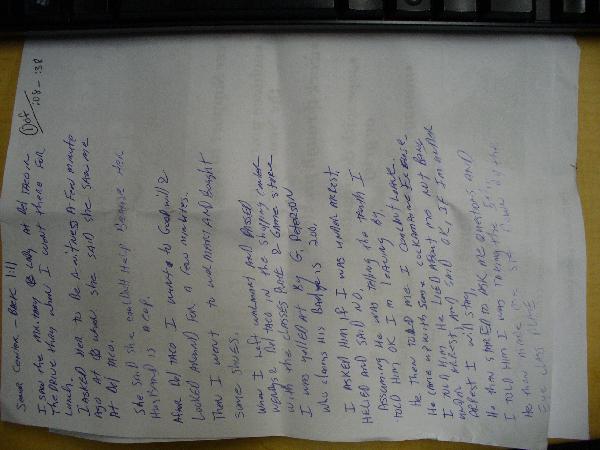 ① of
:08 - :38
I saw the lady at Del Taco
the drive thru when I went there for
lunch.
I asked her to be a witness a few minute
ago at when she said she saw me
at Del Taco.
She said she couldn't help because her
Husband is a cop.
After Del Taco I went to Goodwill &
Looked around for a few minutes.
Then I went to walmart and bought
some shoes.
when I left walmart and passed
Del Taco in the shopping center
with the & Game store
I was yelled at By G. Peterson
who claims his Badge is 200.
I asked him if I was under arrest
and said NO.
Assuming he was telling the truth I
told him OK I'm leaving By.
He then told me I couldn't leave.
He came up with some
I told him He lied about me not Being
under arrest, and said OK, if I'm under
arrest I will stay.
He then started to ask me questions, and
I told him I was taking the 5th,
He then